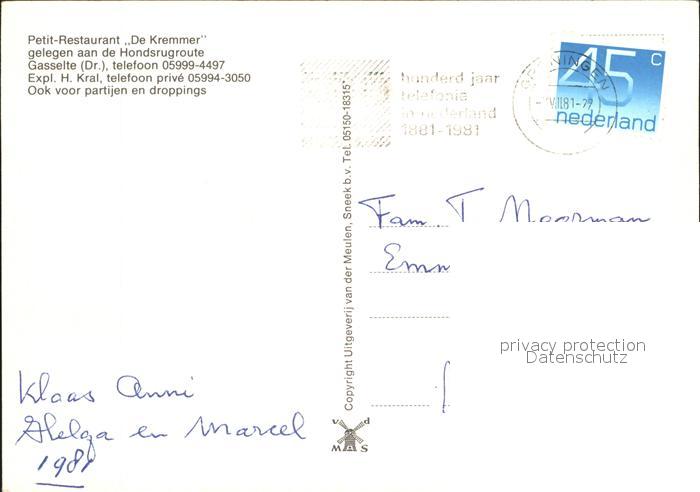 Petit-Restaurant „De Kremmer"
gelegen aan de Hondsrugroute
Gasselte (Dr.), telefoon 05999-4497
Expl. H. Kral, telefoon privé 05994-3050
Ook voor partijen en droppings
honderd jaar
telefonie
in nederland
1881-1981
GRONINGEN
45 c
nederland
Copyright Uitgeverij van der Meulen, Sneek b.v. Tel. 05150-18315
Fam. T Moorman
Emm
privacy protection
Datenschutz
Klaas Anni
Helga en Marcel
1981
v d
W M S